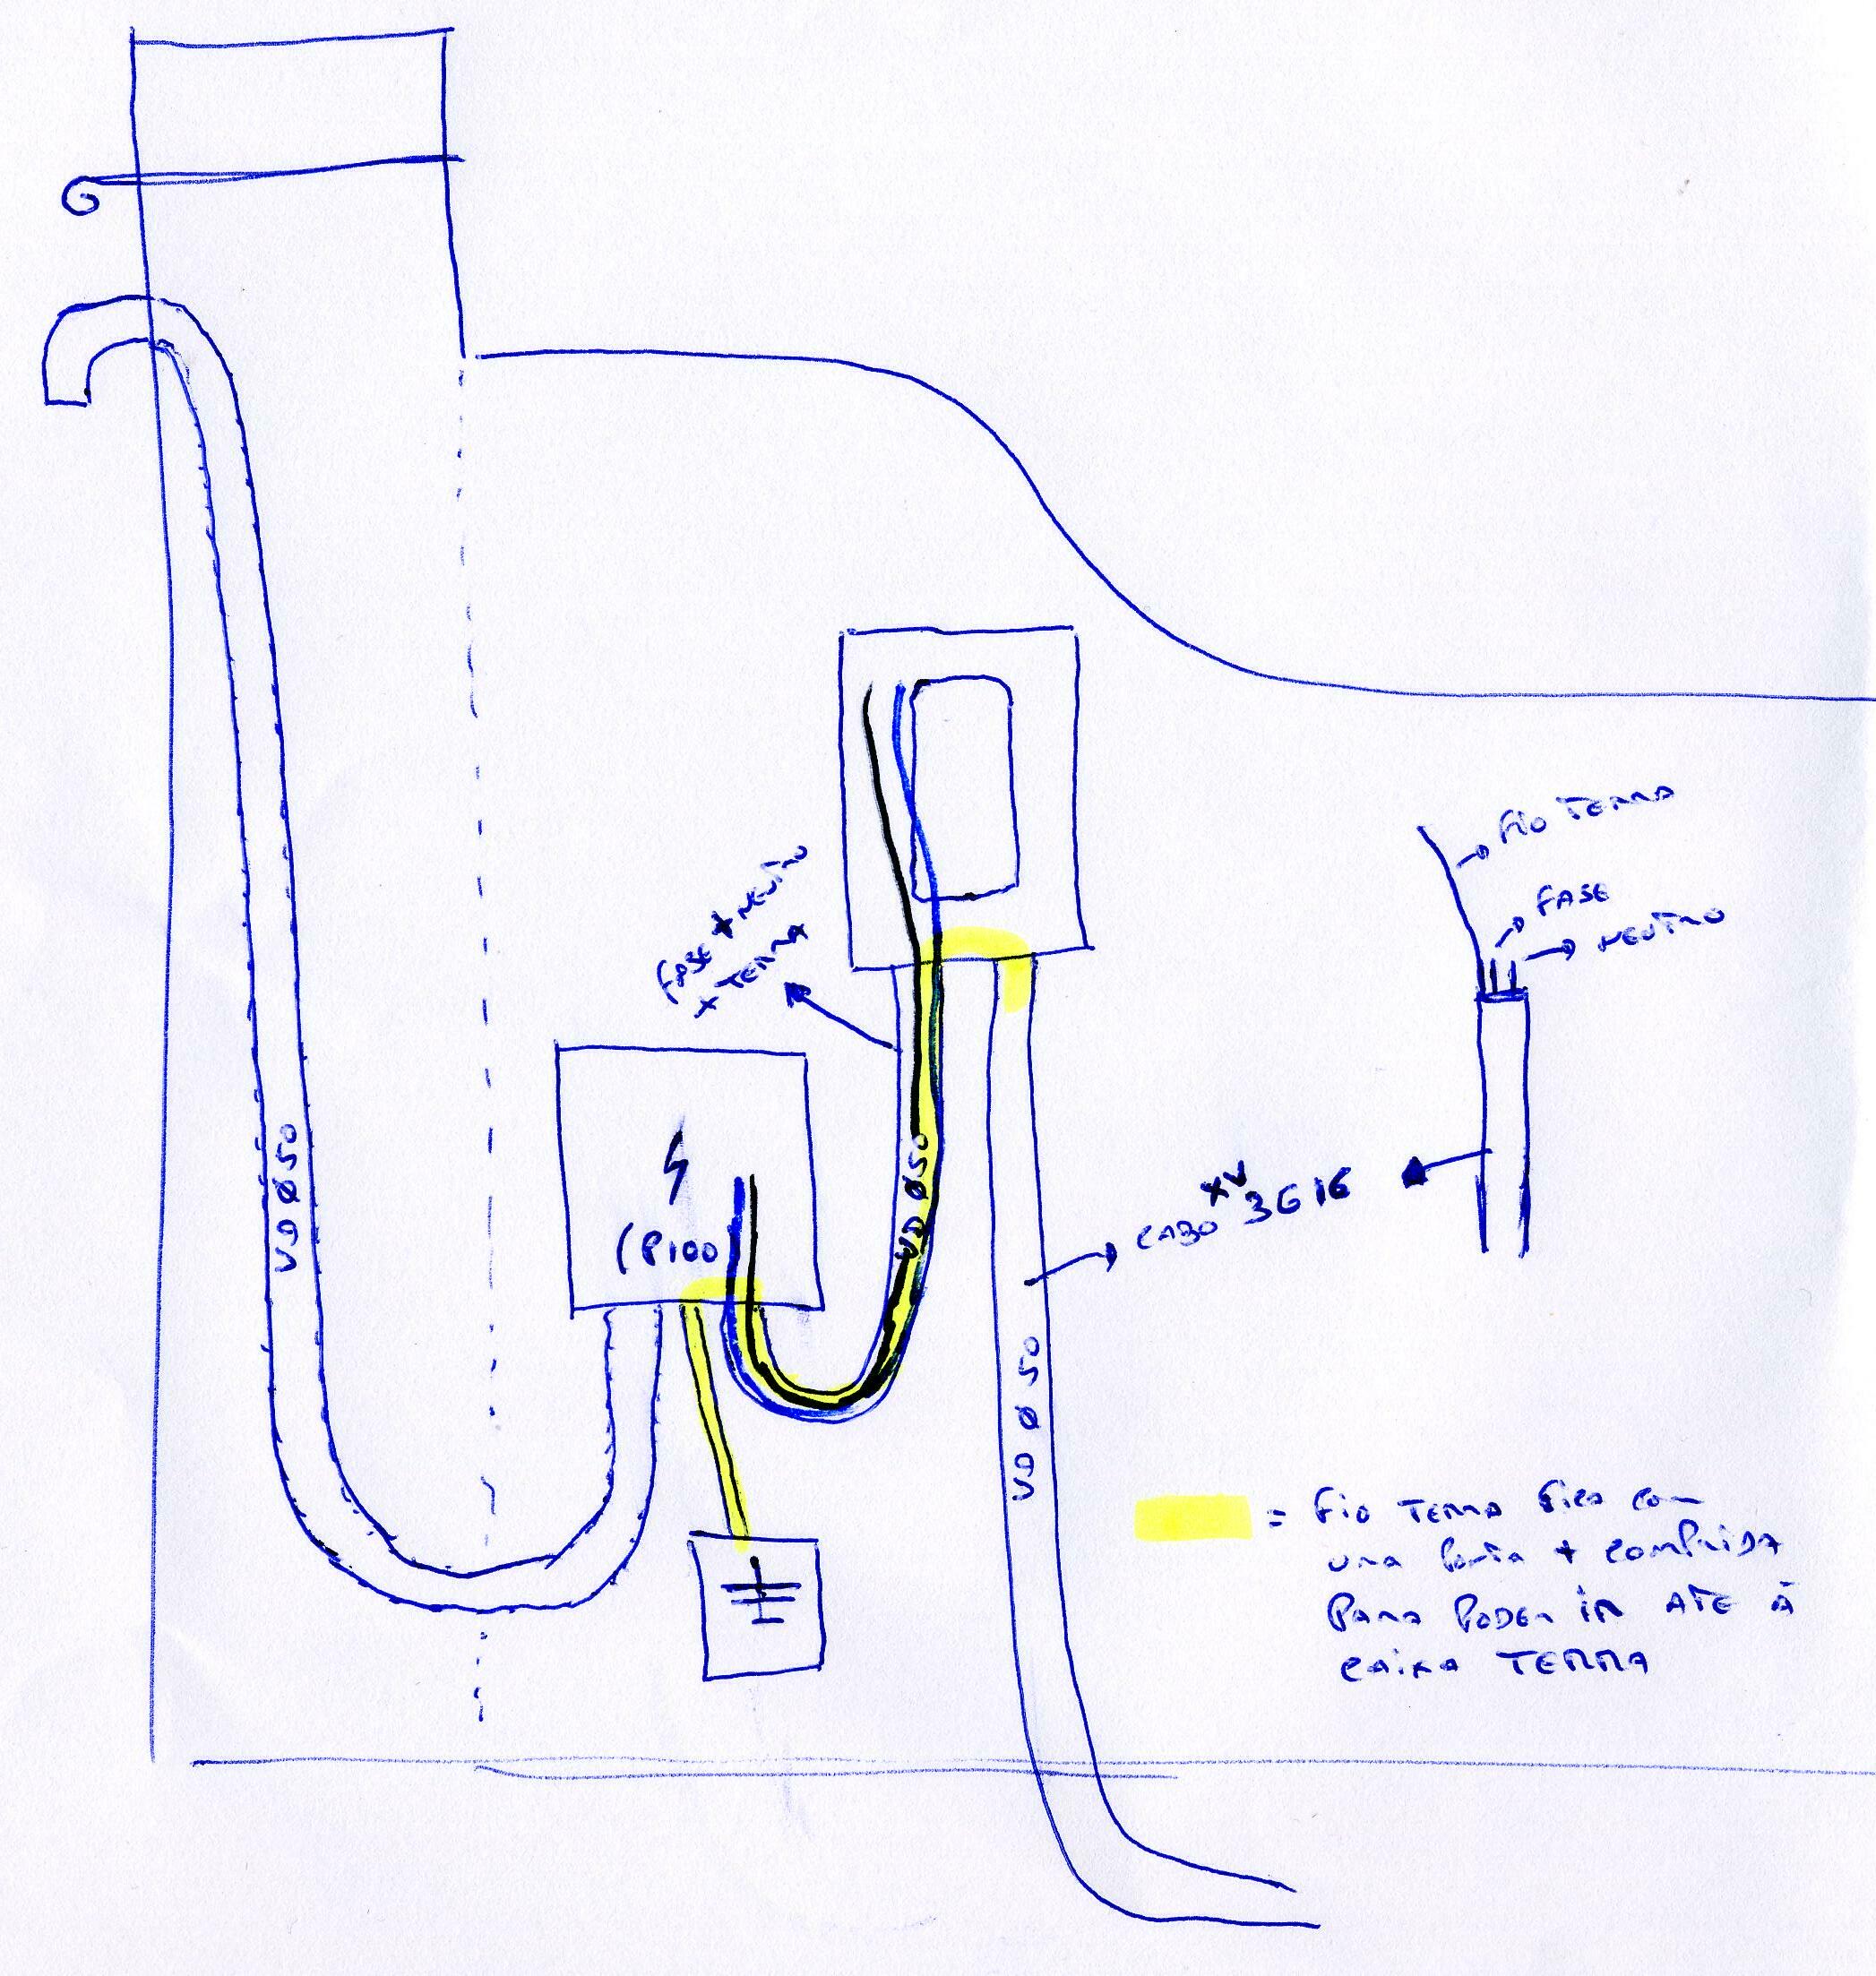 FIO TERRA
FASE
NEUTRO
FASE + NEUTRO
+ TERRA
VD Ø 50
VD Ø 50
(P100
CABO XV 3G16
VD Ø 50
= FIO TERRA FICA COM
UMA PONTA + COMPRIDA
PARA PODER IR ATE Á
CAIXA TERRA